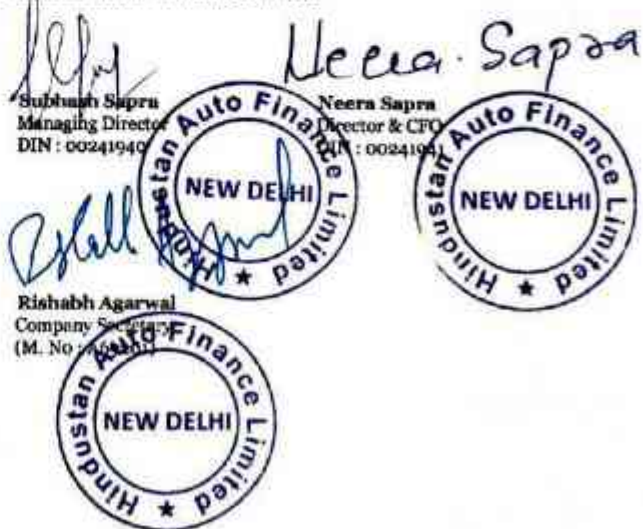 Neera Sapra
Subhash Sapra
Managing Director
DIN : 00241940
Neera Sapra
Director & CFO
DIN : 00241941
Hindustan Auto Finance Limited
NEW DELHI
Hindustan Auto Finance Limited
NEW DELHI
Rishabh Agarwal
Company Secretary
(M. No :
Hindustan Auto Finance Limited
NEW DELHI